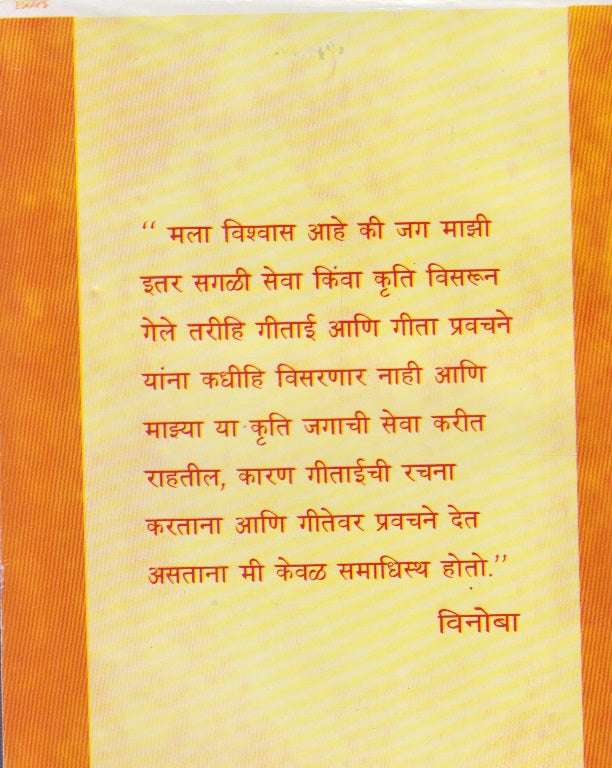 ESKAY'S
“ मला विश्वास आहे की जग माझी
इतर सगळी सेवा किंवा कृति विसरून
गेले तरीहि गीताई आणि गीता प्रवचने
यांना कधीहि विसरणार नाही आणि
माझ्या या कृति जगाची सेवा करीत
राहतील, कारण गीताईची रचना
करताना आणि गीतेवर प्रवचने देत
असताना मी केवळ समाधिस्थ होतो.”
विनोबा